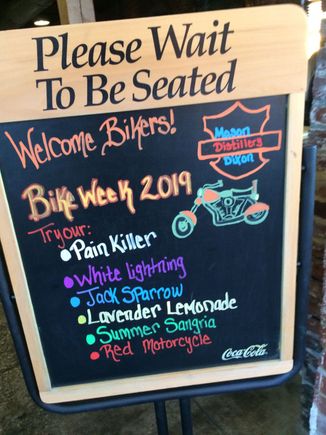 Please Wait
To Be Seated
Welcome Bikers!
Mason
Distillers
Dixon
Bike Week 2019
Try our:
Pain Killer
White lightning
Jack Sparrow
Lavender Lemonade
Summer Sangria
Red Motorcycle
Coca-Cola